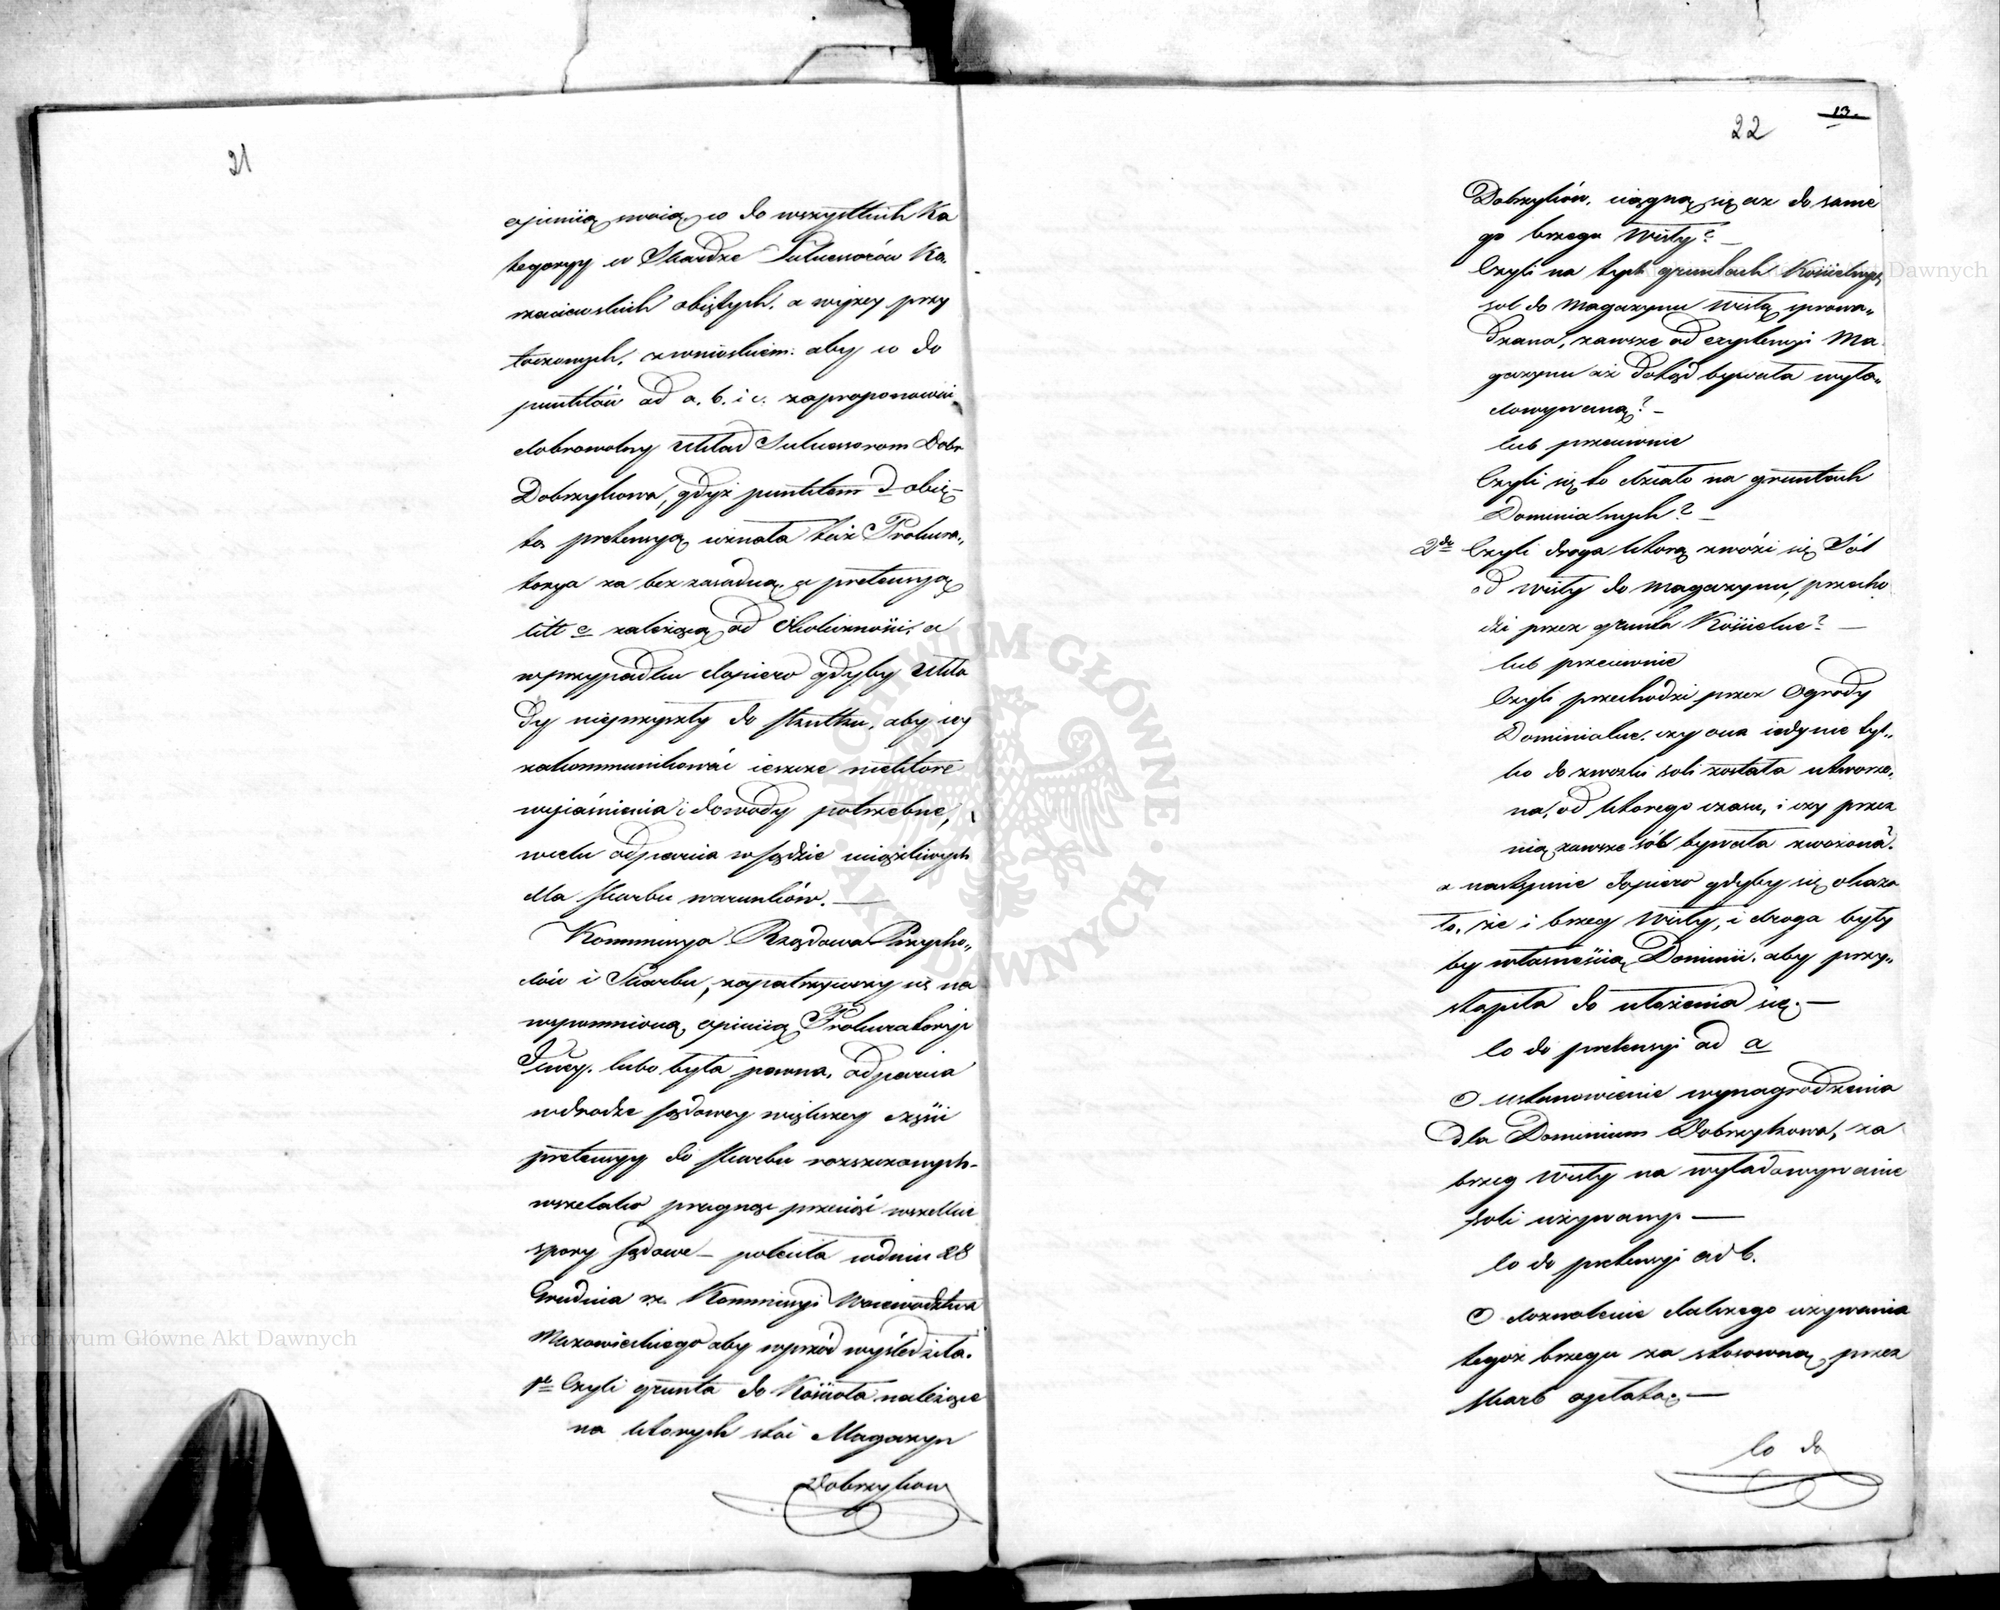 21
opiniią swoią co do wszystkich Ka
tegoryy w Skardze Sukcessorów Ka,
rzeciewskich obiętych, a wyżey przy
toczonych, z wnioskiem: aby co do
punktów ad a. b. i c. zaproponować
dobrowolny Układ Sukcessorom Dobr
Dobrzykowa, gdyż punktem d obię-
tą pretensyą uznała też Prokura„
torya za bezzasadną, a pretensyą
litt e zależącą od Okoliczności, a
wprzypadku dopiero gdyby Ukła
dy nieprzyszły do skutku, aby iey
zakommunikować ieszcze niektóre
wyiaśnienia i dowody potrzebne,
wcelu odparcia wsądzie uciążliwych
dla Skarbu warunków. —
Kommissya Rządowa Przycho„
dów i Skarbu, zapatrzywszy się na
wspomnioną opiniią Prokuratoryi
Jlney. lubo była pewną, odparcia
wdrodze sądowey większey części
pretensyy do Skarbu rozszczonych-
wszelako pragnąc przeciąć wszelkie
spory sądowe — poleciła wdniu 28
Grudnia rz. Kommissyi Woiewództwa
Mazowieckiego aby wprzód wyśledziła.
1e Czyli grunta do Kościoła należące
na których stoi Magazyn
Dobrzyków
13.
22
Dobrzyków, ciągną się aż do same
go brzegu Wisły? —
Czyli na tych gruntach Kościelnych
sól do Magazynu Wisłą sprowa„
dzana, zawsze od exystencyi Ma
gazynu aż dotąd bywała wyła„
dowywaną? —
lub przeciwnie
Czyli się to działo na gruntach
Dominialnych? —
2do Czyli droga którą zwozi się Sól
od Wisły do Magazynu, przecho
dzi przez grunta Kościelne? —
lub przeciwnie
Czyli przechodzi przez Ogrody
Dominialne, czy ona iedynie tyl„
ko do zwózki soli została utworzo„
na, od którego czasu, i czy przez
nią zawsze sól bywała zwożoną?
a następnie dopiero gdyby się okaza
ło, że i brzeg Wisły, i droga były
by własnością Dominii, aby przy„
stąpiła do ułożenia się. —
Co do pretensyi ad a
O ustanowienie wynagrodzenia
dla Dominium Dobrzykowa, za
brzeg Wisły na wyładowywanie
soli używany. —
Co do pretensyi ad b.
O dozwolenie dalszego używania
tegoż brzegu za stosowną, przez
Skarb opłatą. —
Co do